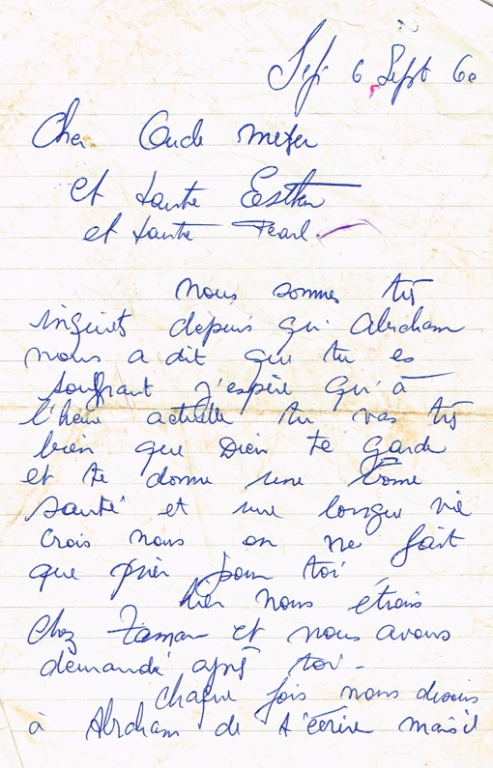 6 Sept 60
Cher Oncle Meyer
et tante Esther
et tante Pearl.
Nous sommes très
inquiets depuis qu'Abraham
nous a dit que tu es
souffrant j'espère qu'à
l'heure actuelle tu vas très
bien que Dieu te garde
et te donne une bonne
santé et une longue vie
crois nous on ne fait
que prier pour toi,
hier nous étions
chez Zaman et nous avons
demandé après toi -
chaque fois nous disons
à Abraham de t'écrire mais il